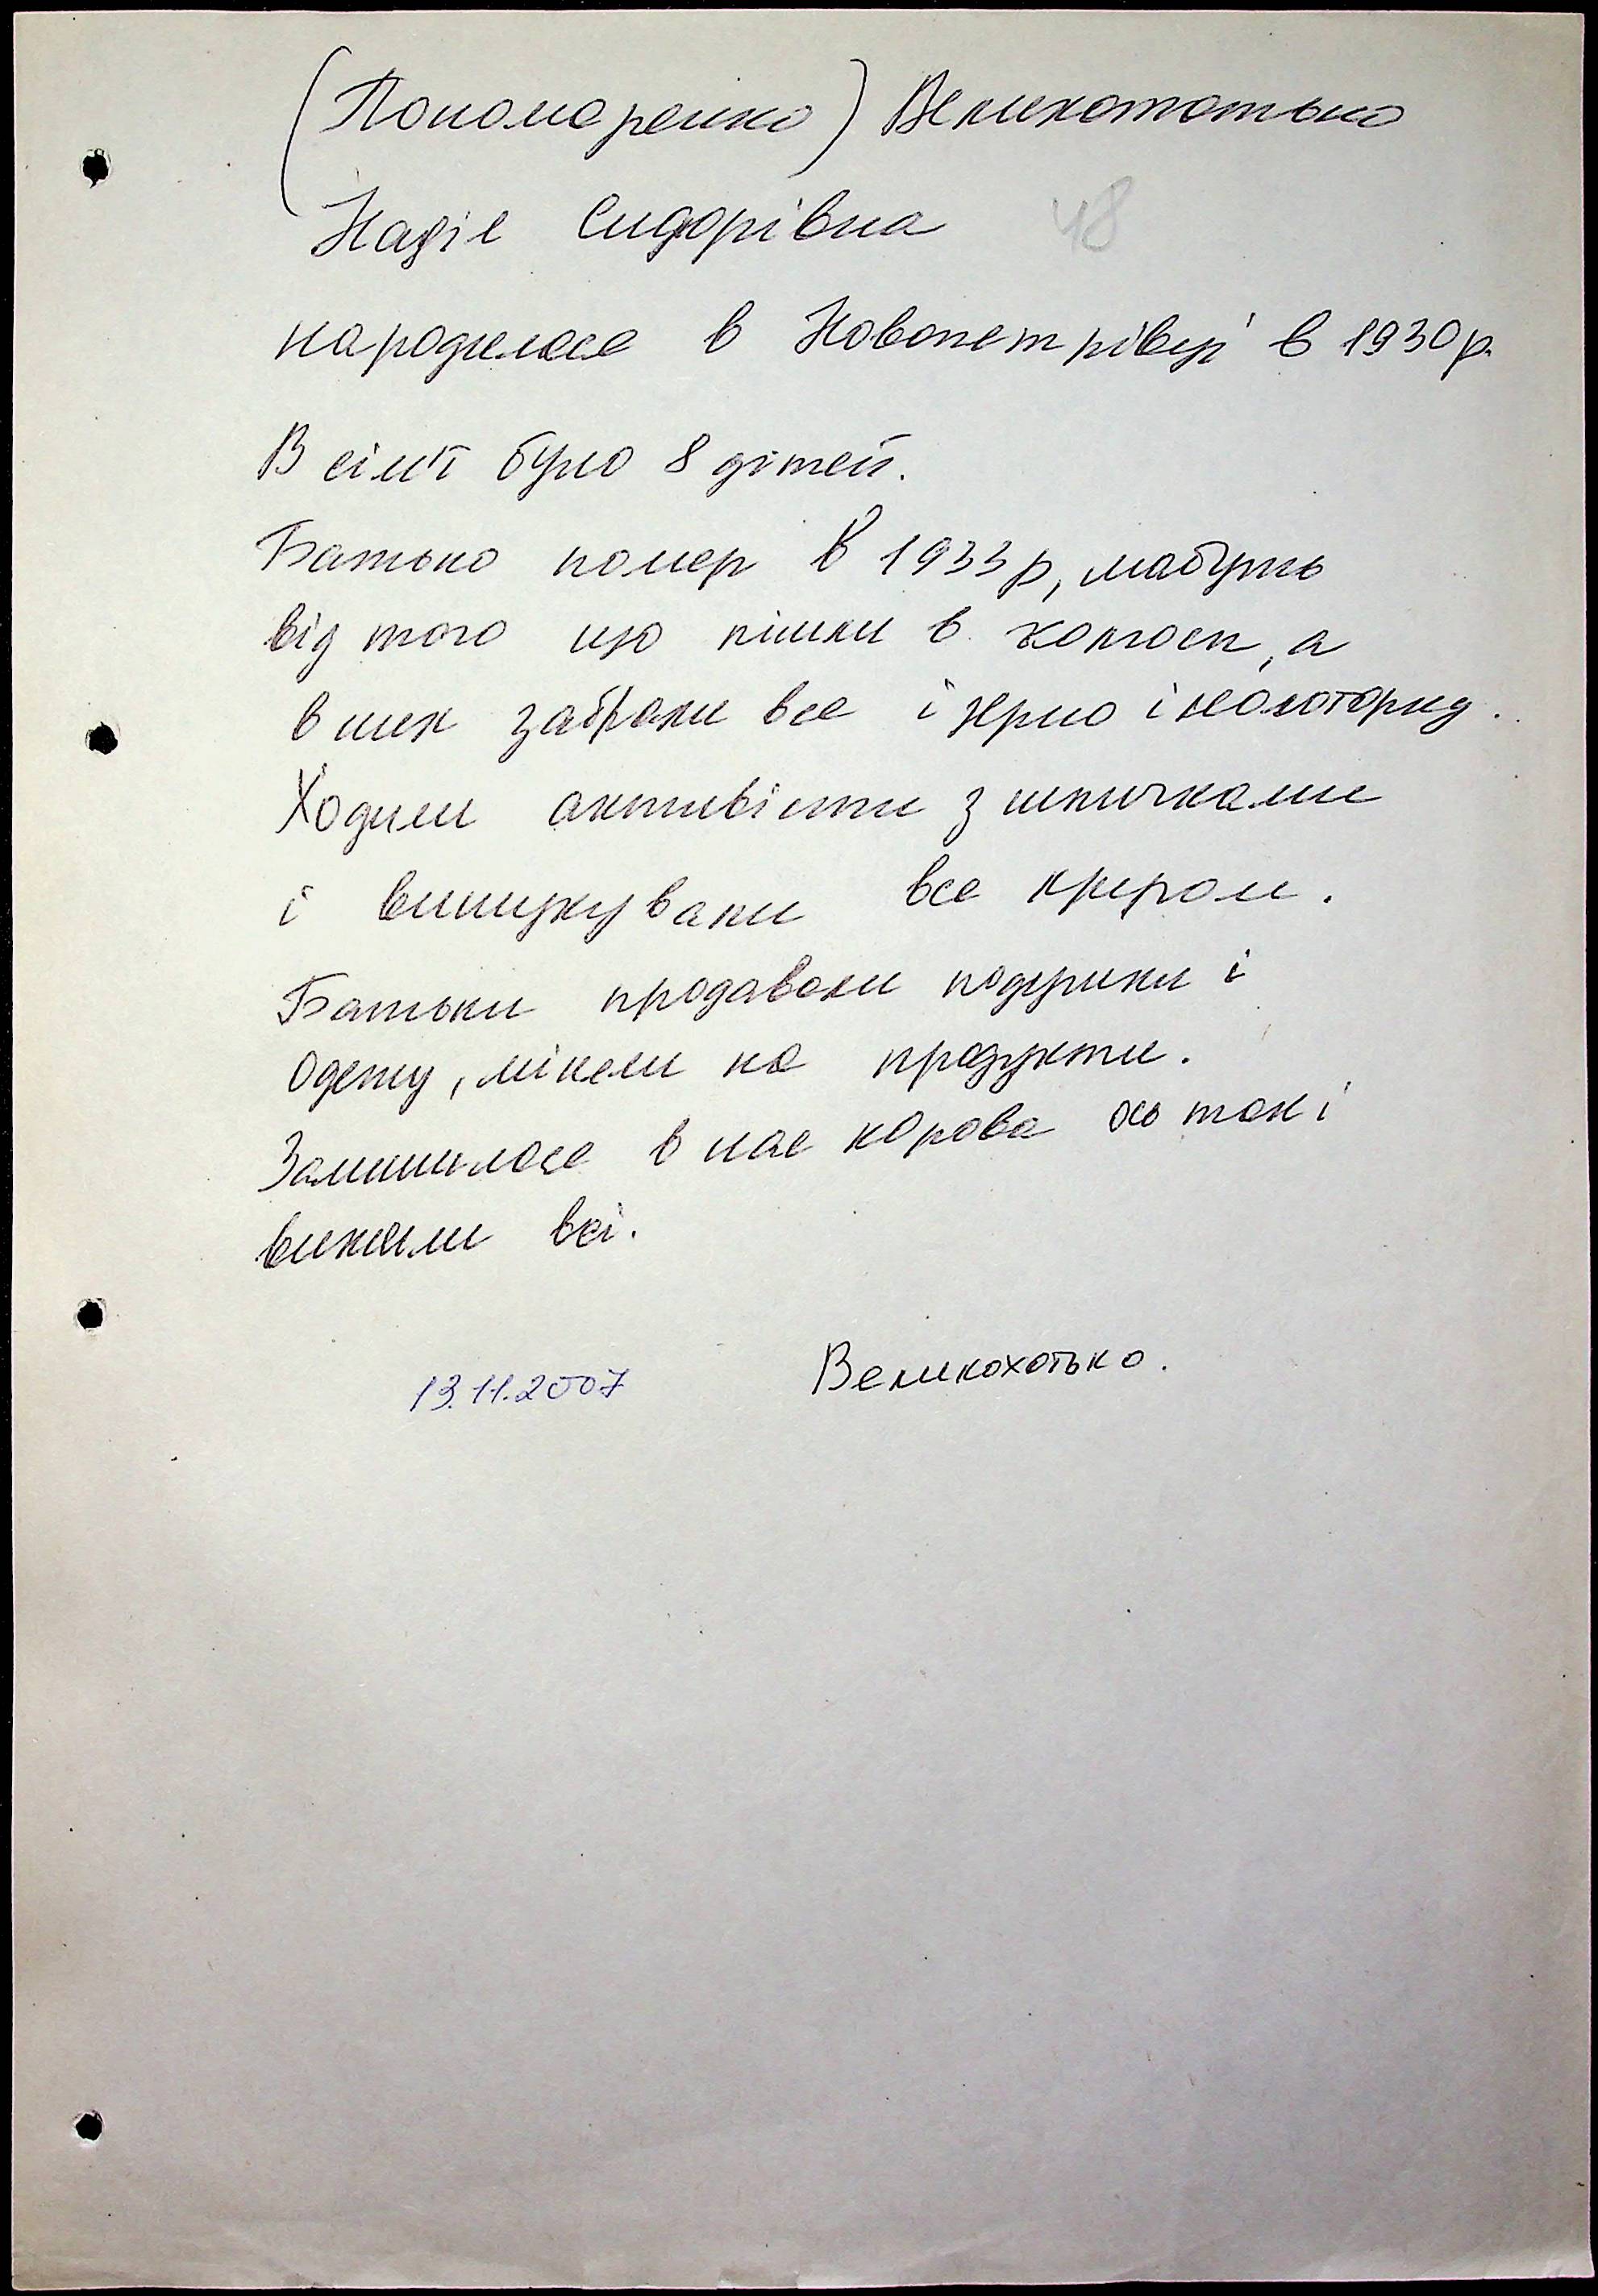 (Пономаренко) Великохотько
Надія Сидорівна 48
народилася в Новопетрівці в 1930р.
В сім'ї було 8 дітей.
Батько помер в 1933р, мабуть
від того що пішли в колгосп, а
в них забрали все і зерно і молотарку.
Ходили активісти з шпичками
і вишукували все кругом.
Батьки продавали подушки і
одежу, міняли на продукти.
Залишилася в нас корова ось так і
вижили всі.
13.11.2007 Великохотько.